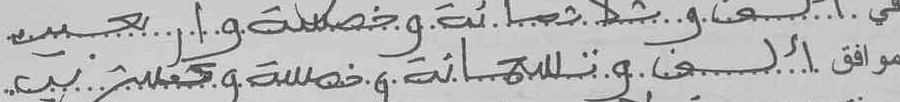 في ألف وثلاثمائة وخمسة وأربعين
موافق ألف وتسعمائة وخمسة وعشرين